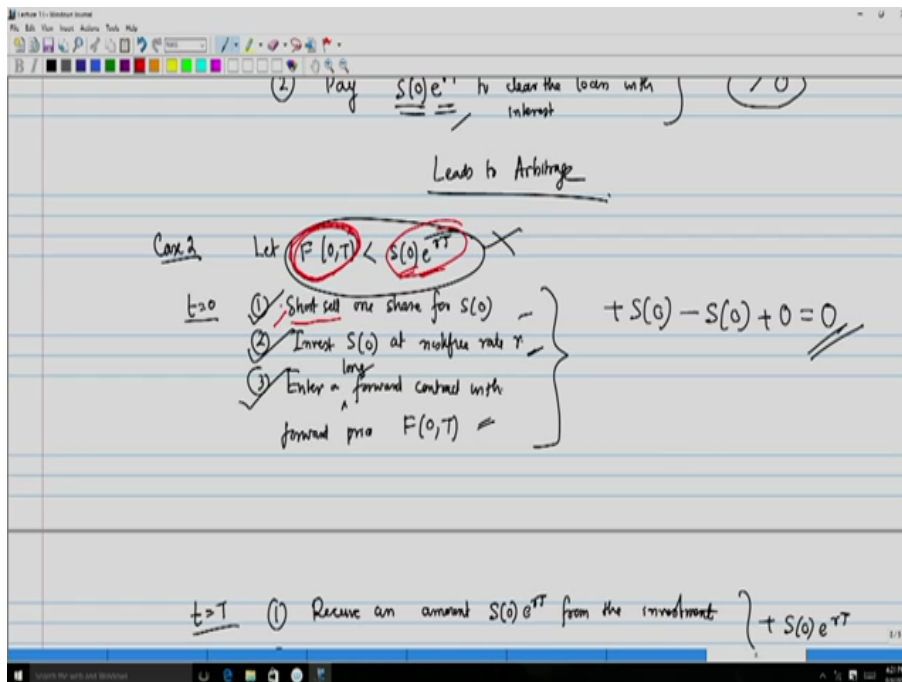 Lecture 13 - Windows Journal
File Edit View Insert Actions Tools Help
B I
(2) Pay S(0) e^{rT} to clear the loan with interest } > 0
Leads to Arbitrage
Case 2 Let F(0,T) < S(0) e^{rT} X
t=0 (1) Short sell one share for S(0)
(2) Invest S(0) at riskfree rate r
(3) Enter a long forward contract with
forward price F(0,T)
+ S(0) - S(0) + 0 = 0
t=T (1) Receive an amount S(0) e^{rT} from the investment } + S(0) e^{rT}
Search the web and Windows